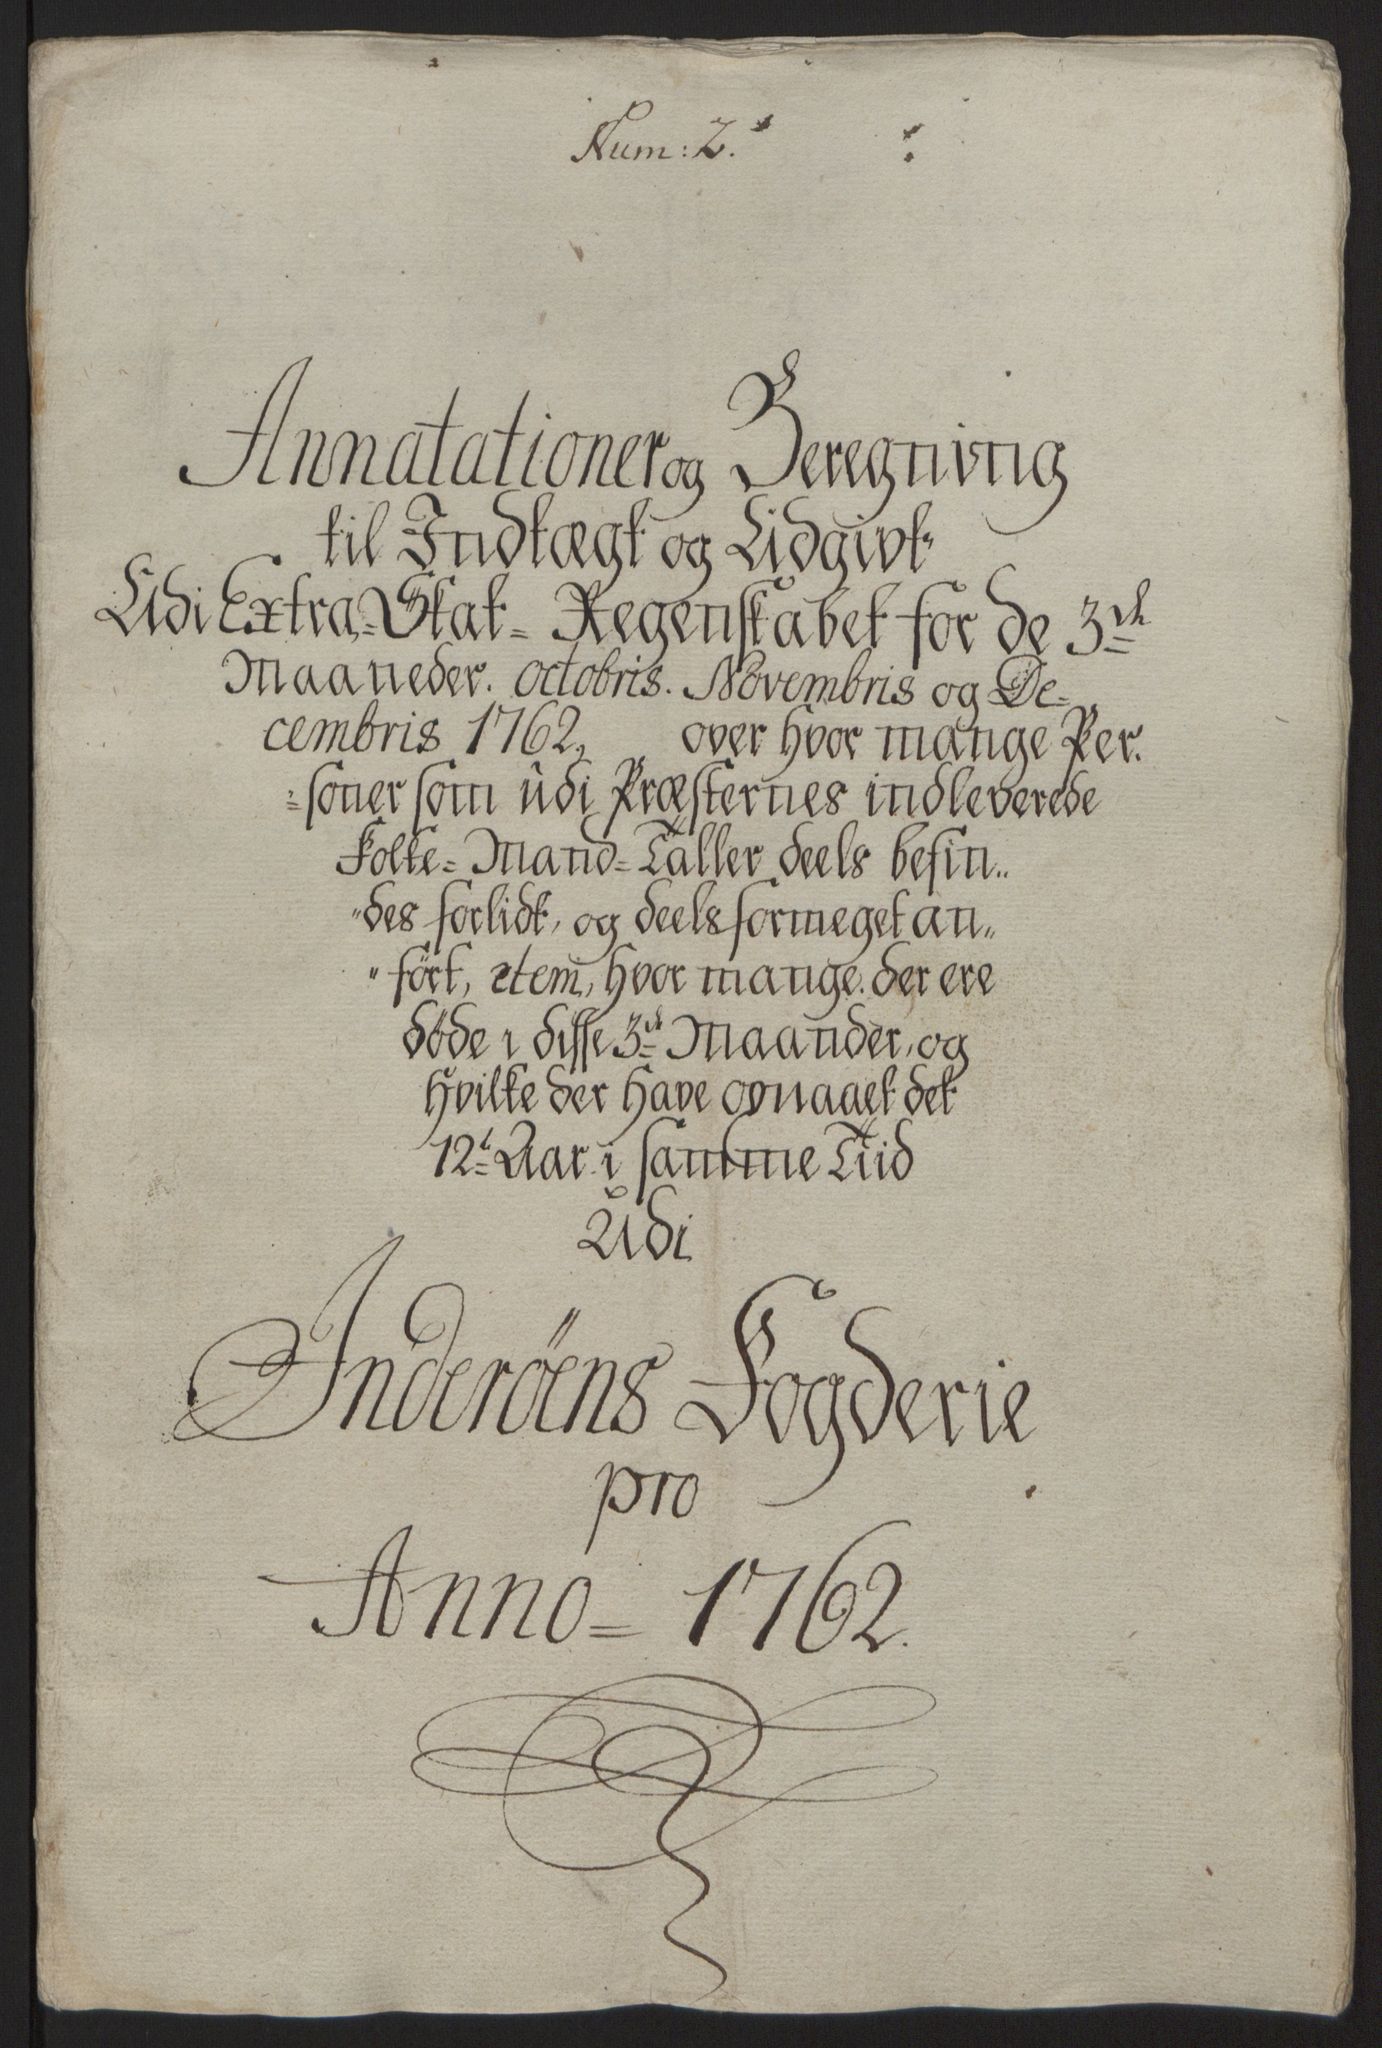 Num: 2.
Annatationer og Beregning
til Indtægt og Udgivt
Udi Extra=Skat=Regenskabet for de 3de
Maaneder. Octobris. Novembris og De=
cembris 1762, over hvor mange Per.
=soner som udi Præsternes indleverede
Folke=Mand=Taller deels befin„
„des forlidt, og deels formeget an„
„fört, item, hvor mange der ere
döde i disse 3de Maander, og
hvilke der have opnaaet det
12te Aar i samme Tiid
Udi
Inderöens Fogderie
pro
Anno= 1762.